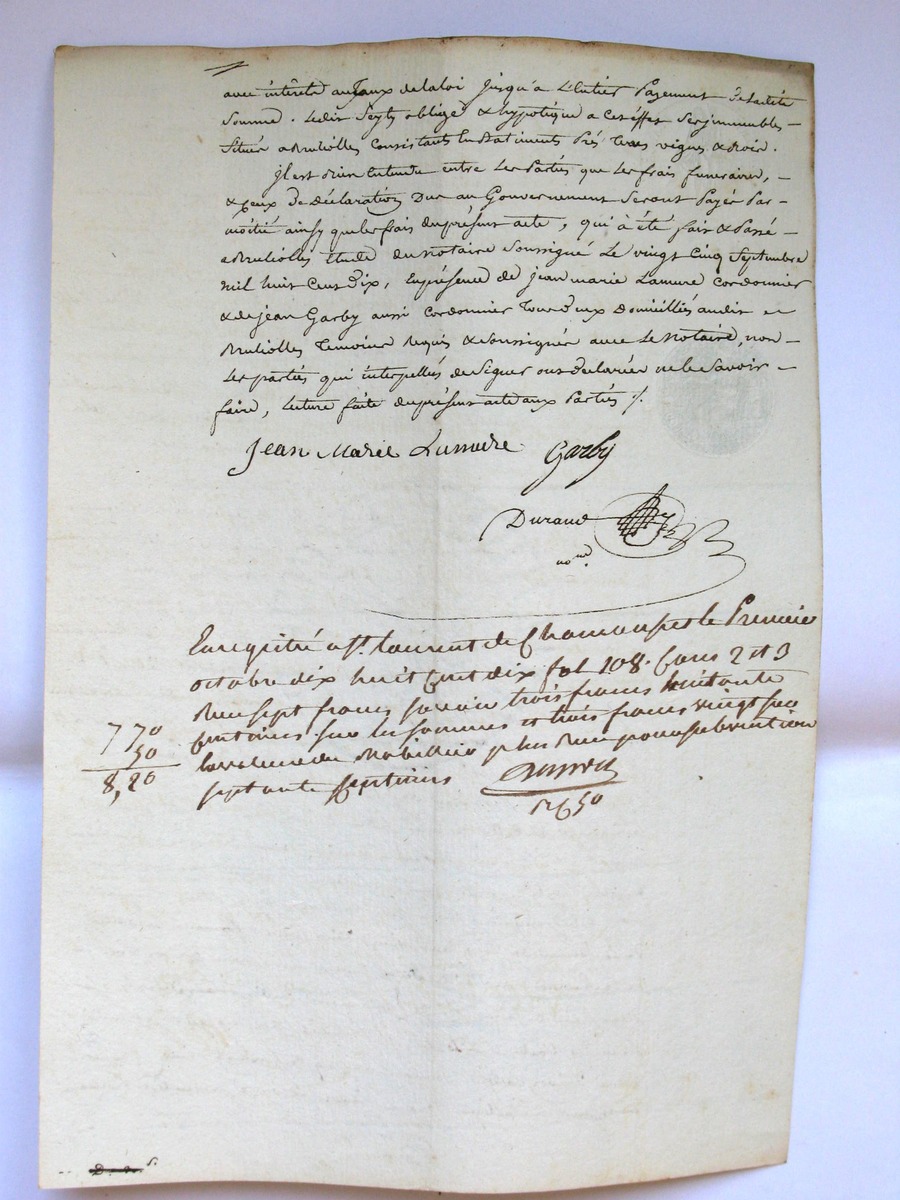 avec intérêts au Taux de la loi jusqu'a L'Entier Payement de ladite
Somme. Ledit Seyts oblige & hypotéque a Cet éffet Ses immeubles
Situés a Bruliolles Consistants En Batiments Prés Terres vignes & Bois.
il est Bien Entendu entre Les Parties que Les frais funeraires,
& Ceux de Déclaration Dus au Gouvernement Seront Payés Par
moitié ainsy que les frais du présent acte, qui à été fait & Passé
a Brulioles Etude du Notaire Soussigné Le vingt Cinq Septembre
Mil huit Cent Dix, En présence de Jean marie Lamure Cordonnier
& de Jean Garby aussi Cordonnier Tous Deux Domiciliés audit
Brulioles Temoins Requis & Soussignés avec Le Notaire, non
Les parties qui interpellés de Signer ont déclarées ne le Savoir
faire, Lecture faite du présent acte aux Parties ./.
Jean Marie Lamure Garby
Durand
no.re
Enregistré a St. laurent de Chamousset le Premier
octobre dix huit Cent dix fol 108. Cases 2 et 3
Reçu sept francs savoir trois francs huitante
Centimes sur les sommes et trois francs vingt sur
la valeur du Mobilier plus Reçu pour subvention
septante Centimes
7 70
50
8,20